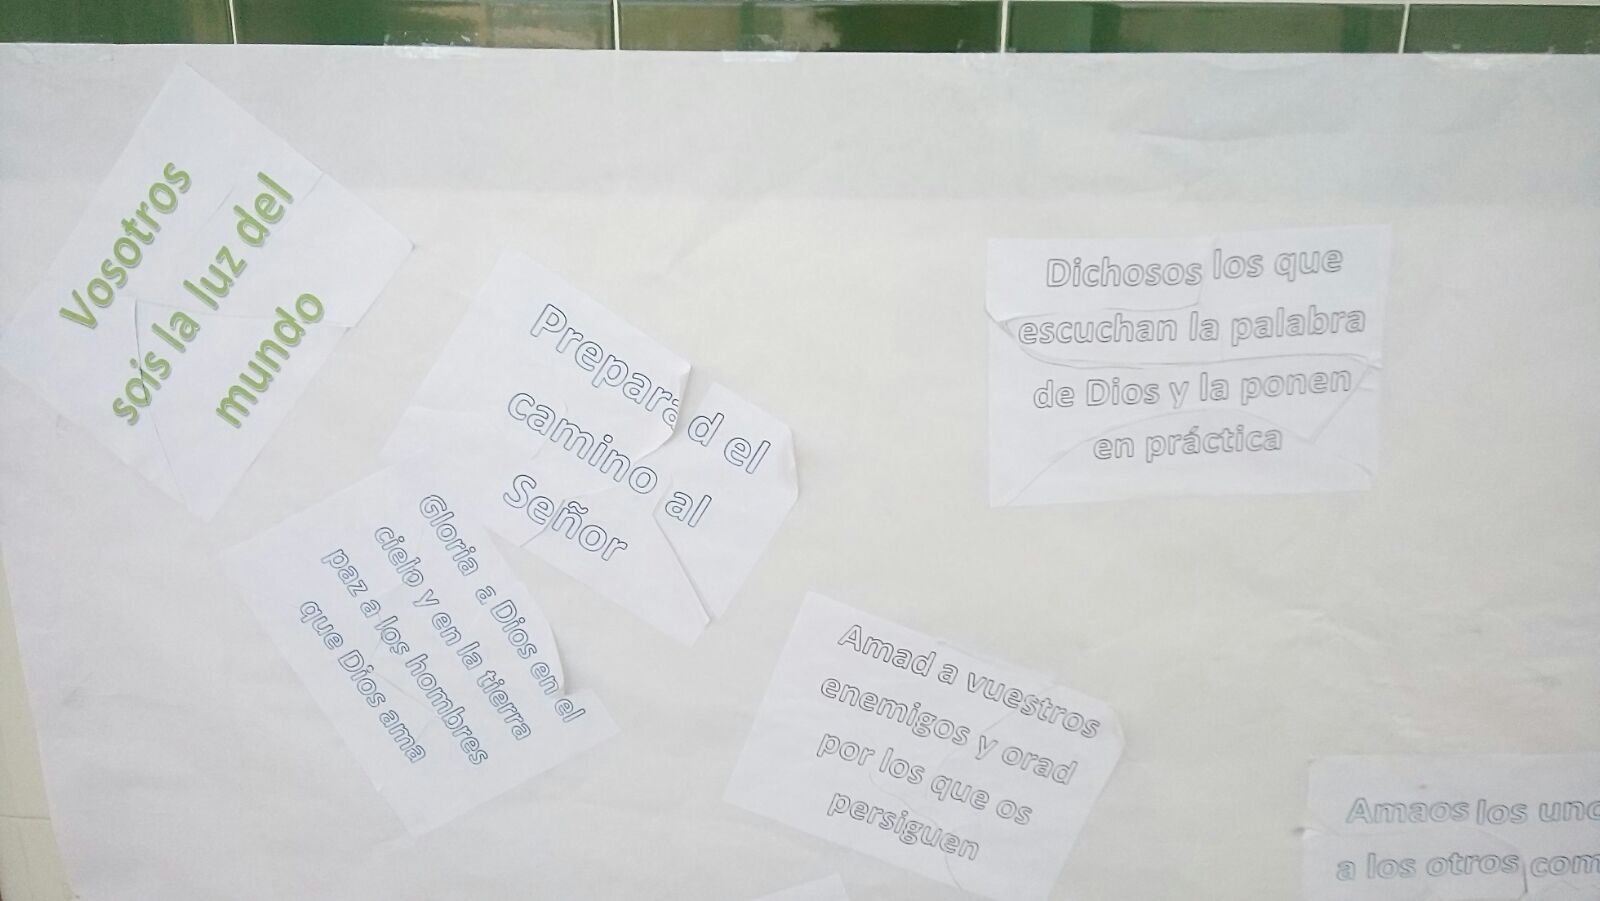 Vosotros
sois la luz del
mundo
Preparad el
camino al
Señor
Dichosos los que
escuchan la palabra
de Dios y la ponen
en práctica
Gloria a Dios en el
cielo y en la tierra
paz a los hombres
que Dios ama
Amad a vuestros
enemigos y orad
por los que os
persiguen
Amaos los
a los otros